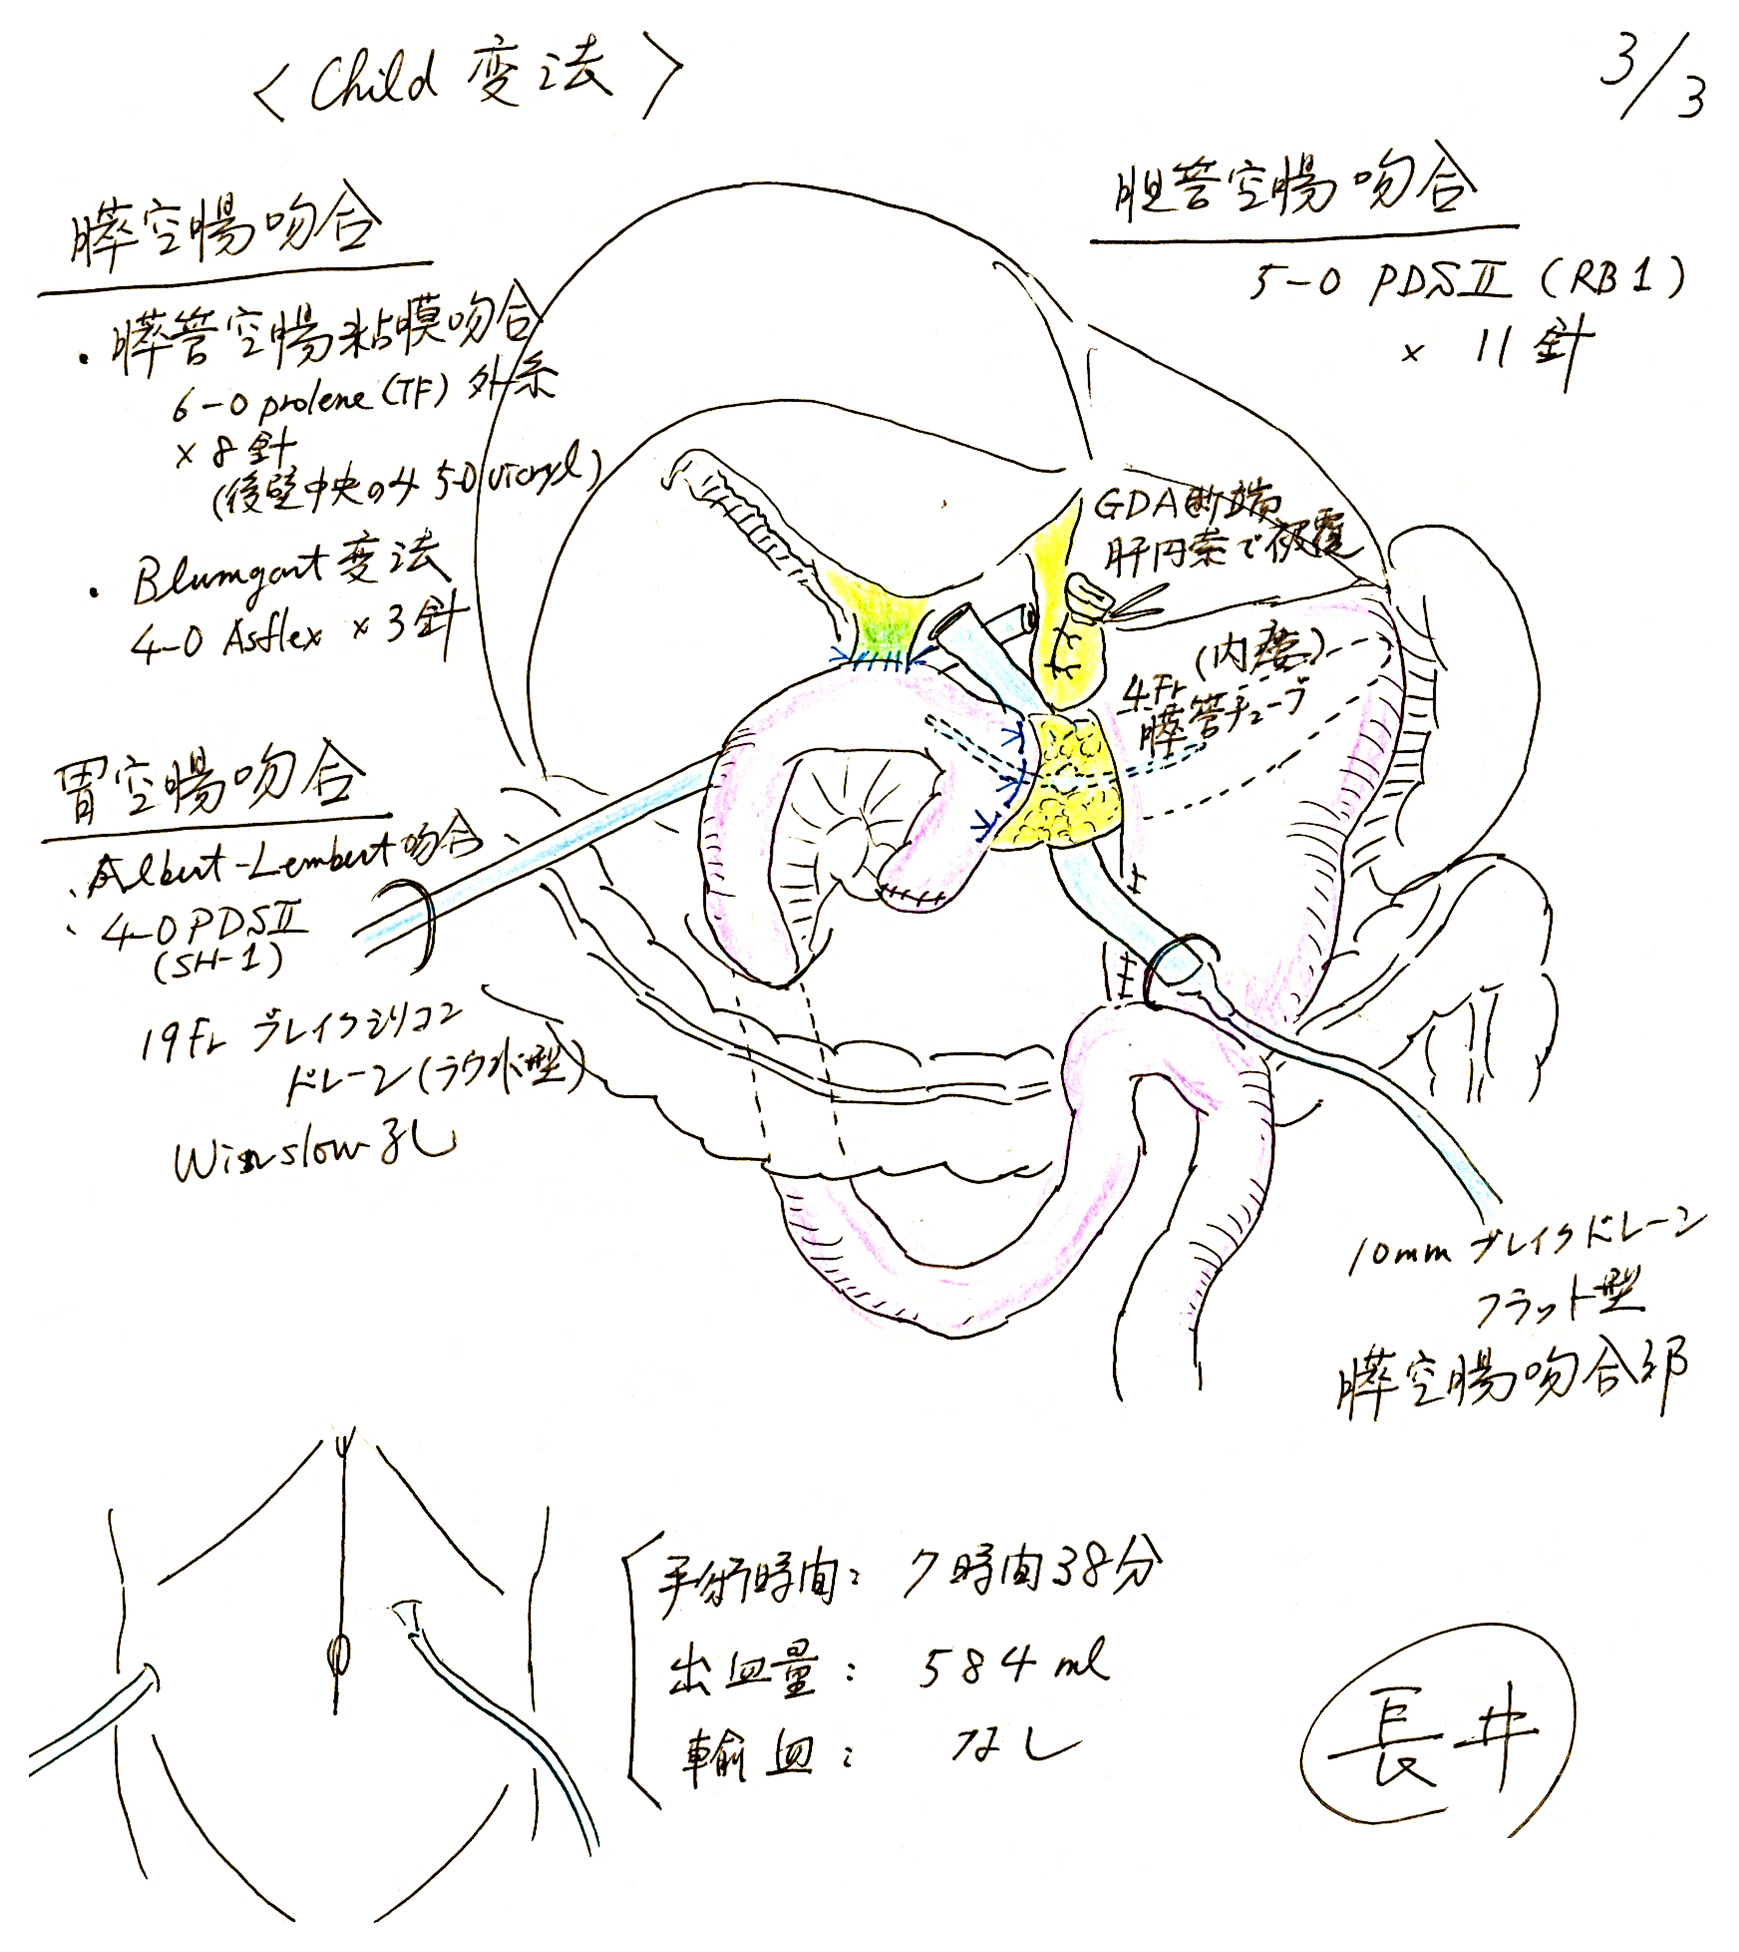 <Child 変法>
3/3
膵空腸吻合
・膵管空腸粘膜吻合
6-0 prolene (TF) 外糸
× 8針
(後壁中央のみ 5-0 vicryl)
・Blumgart変法
4-0 Asflex × 3針
胃空腸吻合
・Albert-Lembert吻合
・4-0 PDSⅡ
(SH-1)
19Fr ブレイクシリコン
ドレーン(ラウンド型)
Winslow孔
胆管空腸吻合
5-0 PDSⅡ (RB1)
× 11針
GDA断端
肝円索で被覆
(内瘻)
4Fr
膵管チューブ
10mm ブレイクドレーン
フラット型
膵空腸吻合部
手術時間: 7時間38分
出血量: 584ml
輸血: なし
長井